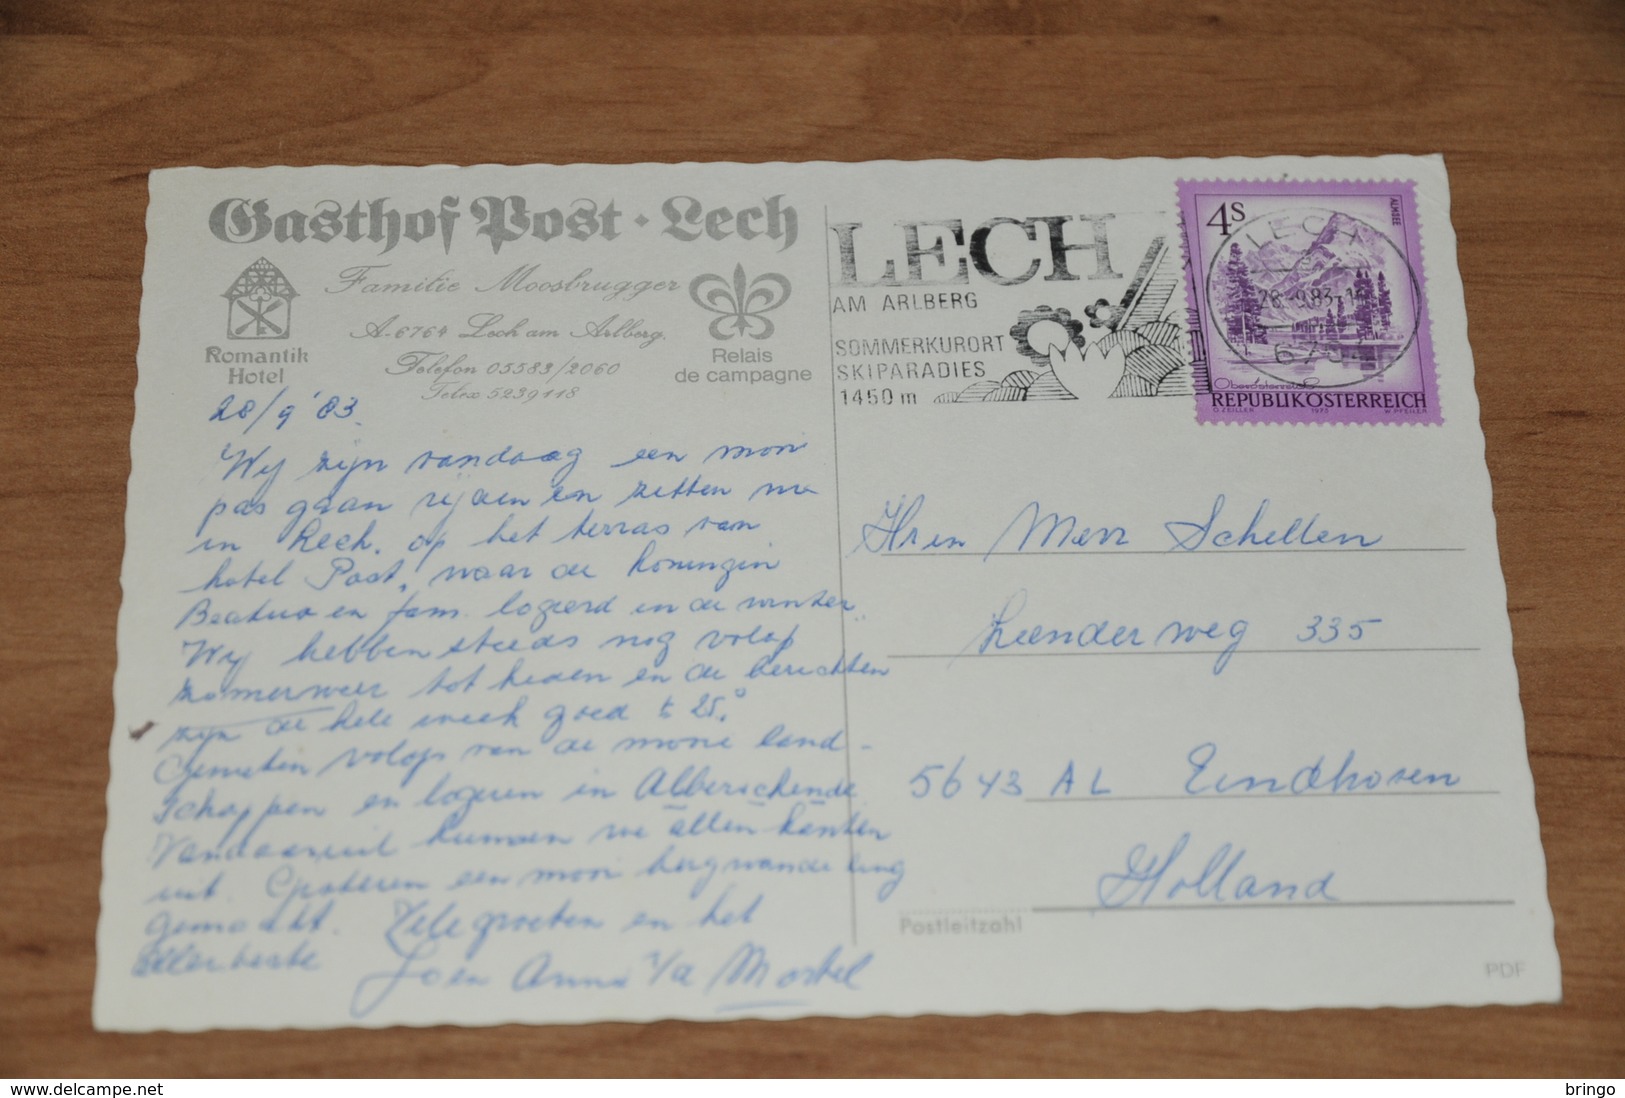 Gasthof Post · Lech
Familie Moosbrugger
A-6764 Lech am Arlberg.
Telefon 05583/2060
Telex 5239118
Romantik
Hotel
Relais
de campagne
28/9 '83.
Wij zijn vandaag een mooi
pas gaan rijden en zitten nu
in Lech. op het terras van
hotel Post, waar de koningin
Beatrix en fam. logeerd in de winter.
Wij hebben steeds nog volop
zomerweer tot heden en de berichten
zijn de hele week goed ± 25°.
Genieten volop van de mooie land-
schappen en logeren in Alberschende
Vandaaruit kunnen we allen kanten
uit. Gisteren een mooi bergwandeling
gemaakt. Vele groeten en het
allerbeste
Joen Anna v/d Mortel
LECH
AM ARLBERG
SOMMERKURORT
SKIPARADIES
1450 m
4S
ALMSEE
LECH
28.-9.83-16
Oberösterreich
REPUBLIK ÖSTERREICH
O. ZEILLER 1973 W. PFEILER
Hr en Mevr Schellen
Leenderweg 335
5643 AL Eindhoven
Holland
Postleitzahl
PDF
bringo